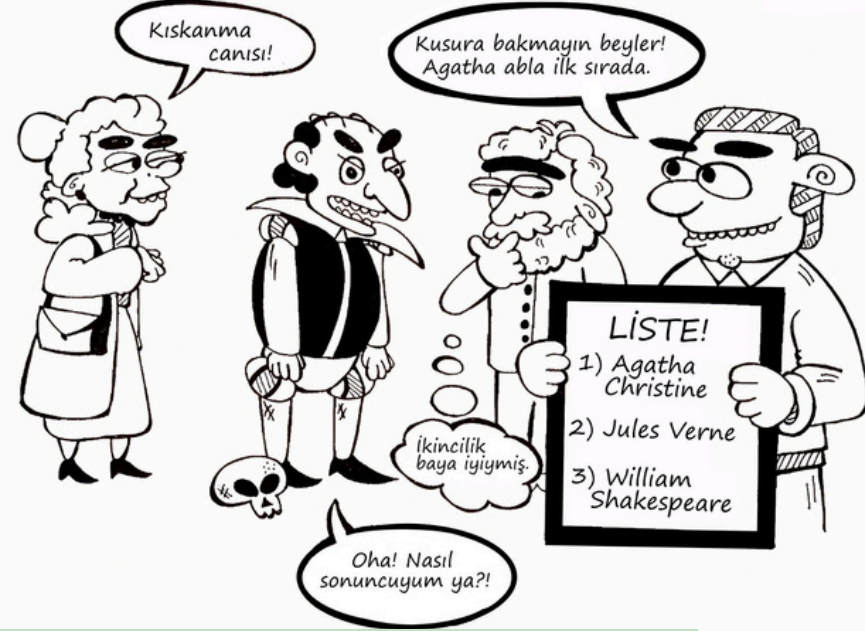 Kıskanma
canısı!
Kusura bakmayın beyler!
Agatha abla ilk sırada.
LİSTE!
1) Agatha
Christine
2) Jules Verne
3) William
Shakespeare
İkincilik
baya iyiymiş.
Oha! Nasıl
sonuncuyum ya?!